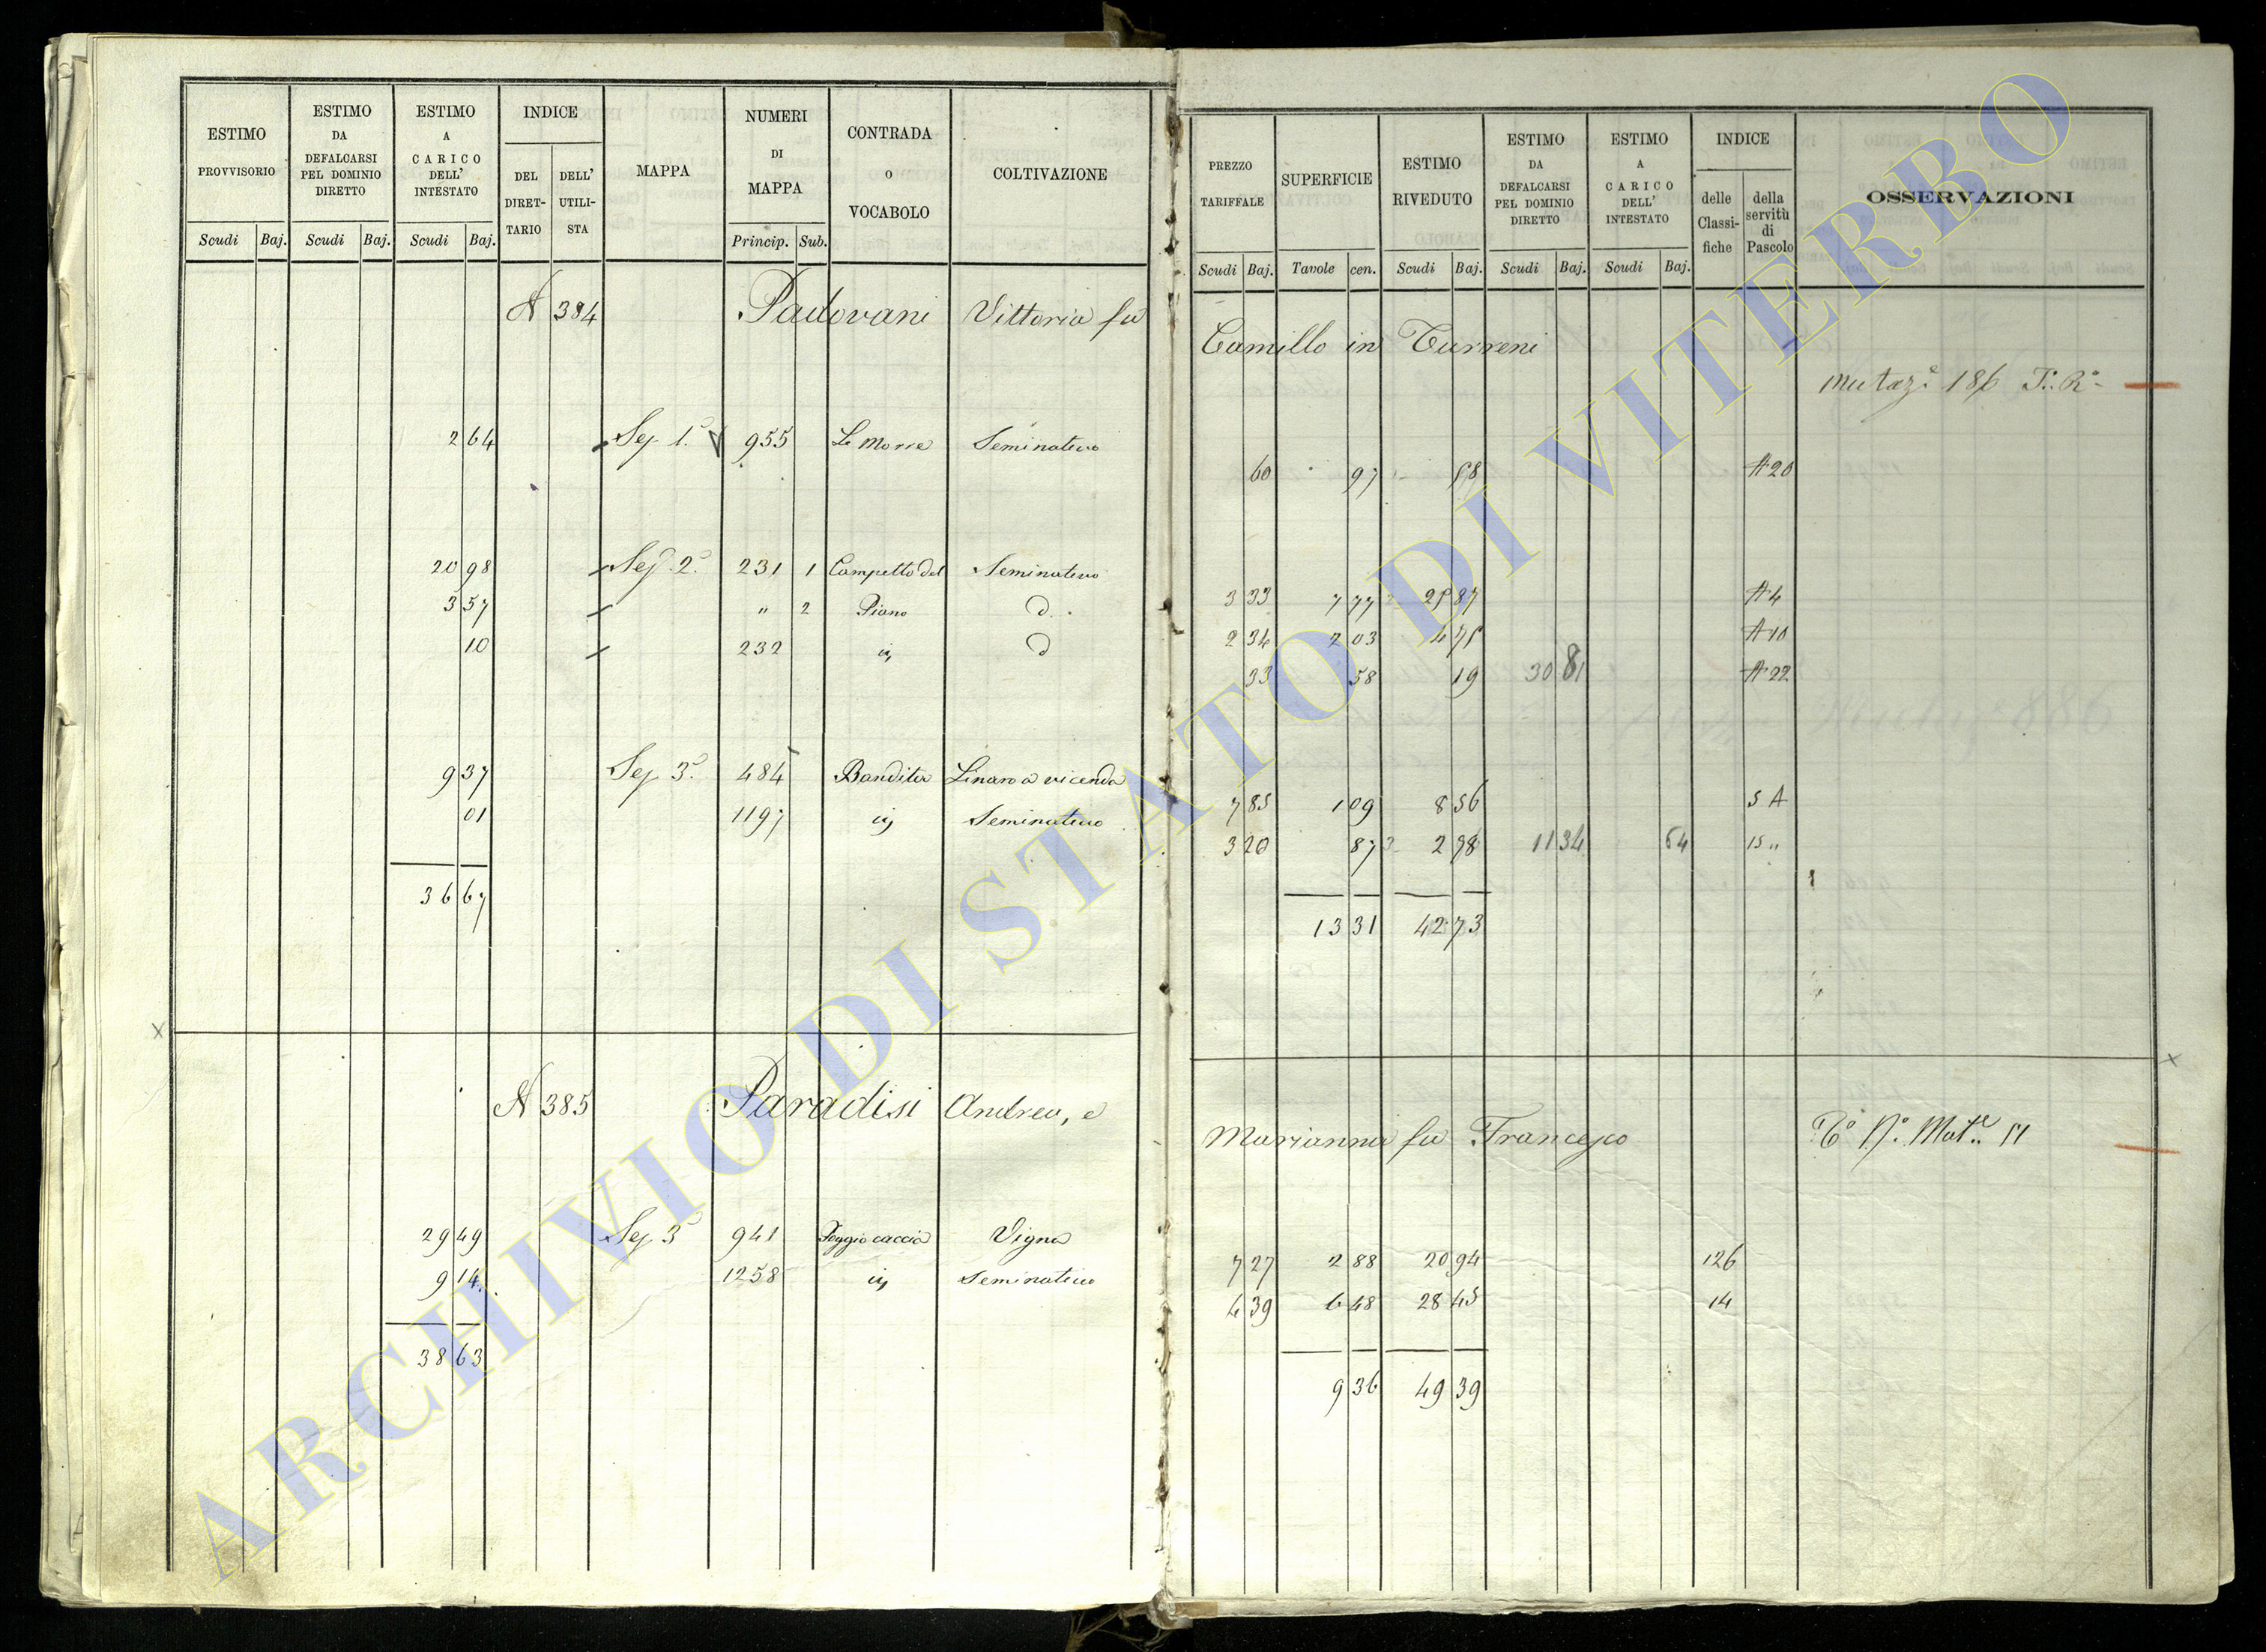 ESTIMO PROVVISORIO
ESTIMO DA DEFALCARSI PEL DOMINIO DIRETTO
ESTIMO A CARICO DELL' INTESTATO
INDICE
DEL DIRET-TARIO
DELL' UTILI-STA
MAPPA
NUMERI DI MAPPA
CONTRADA O VOCABOLO
COLTIVAZIONE
Scudi Baj. Scudi Baj. Scudi Baj. Princip. Sub.
N 384 Padovani Vittoria fu
2 64 Sez. 1.a 955 Le Morre Seminativo
20 98 Sez. 2.a 231 1 Campetto del Seminativo
3 57 " 2 Piano d.
10 232 iv d
9 37 Sez 3.a 484 Bandita Linaro a vicenda
01 1197 iv Seminativo
36 67
N 385 Paradisi Andrea, e
29 49 Sez 3 941 Poggio caccia Vigna
9 14 1258 iv Seminativo
38 63
PREZZO TARIFFALE
SUPERFICIE
ESTIMO RIVEDUTO
ESTIMO DA DEFALCARSI PEL DOMINIO DIRETTO
ESTIMO A CARICO DELL' INTESTATO
INDICE
delle Classi-fiche
della servitù di Pascolo
OSSERVAZIONI
Scudi Baj. Tavole cen. Scudi Baj. Scudi Baj. Scudi Baj.
Camillo in Turreni
Mutaz.e 186
60 97 58 A 20
3 33 7 77 25 87 A 4
2 34 2 03 4 75 A 10
33 58 19 30 81 A 22
7 85 1 09 8 56 5 A
3 20 87 2 98 11 34 64 15 "
13 31 42 73
Marianna fu Francesco
7 27 2 88 20 94 126
4 39 6 48 28 45 14
9 36 49 39
ARCHIVIO DI STATO DI VITERBO